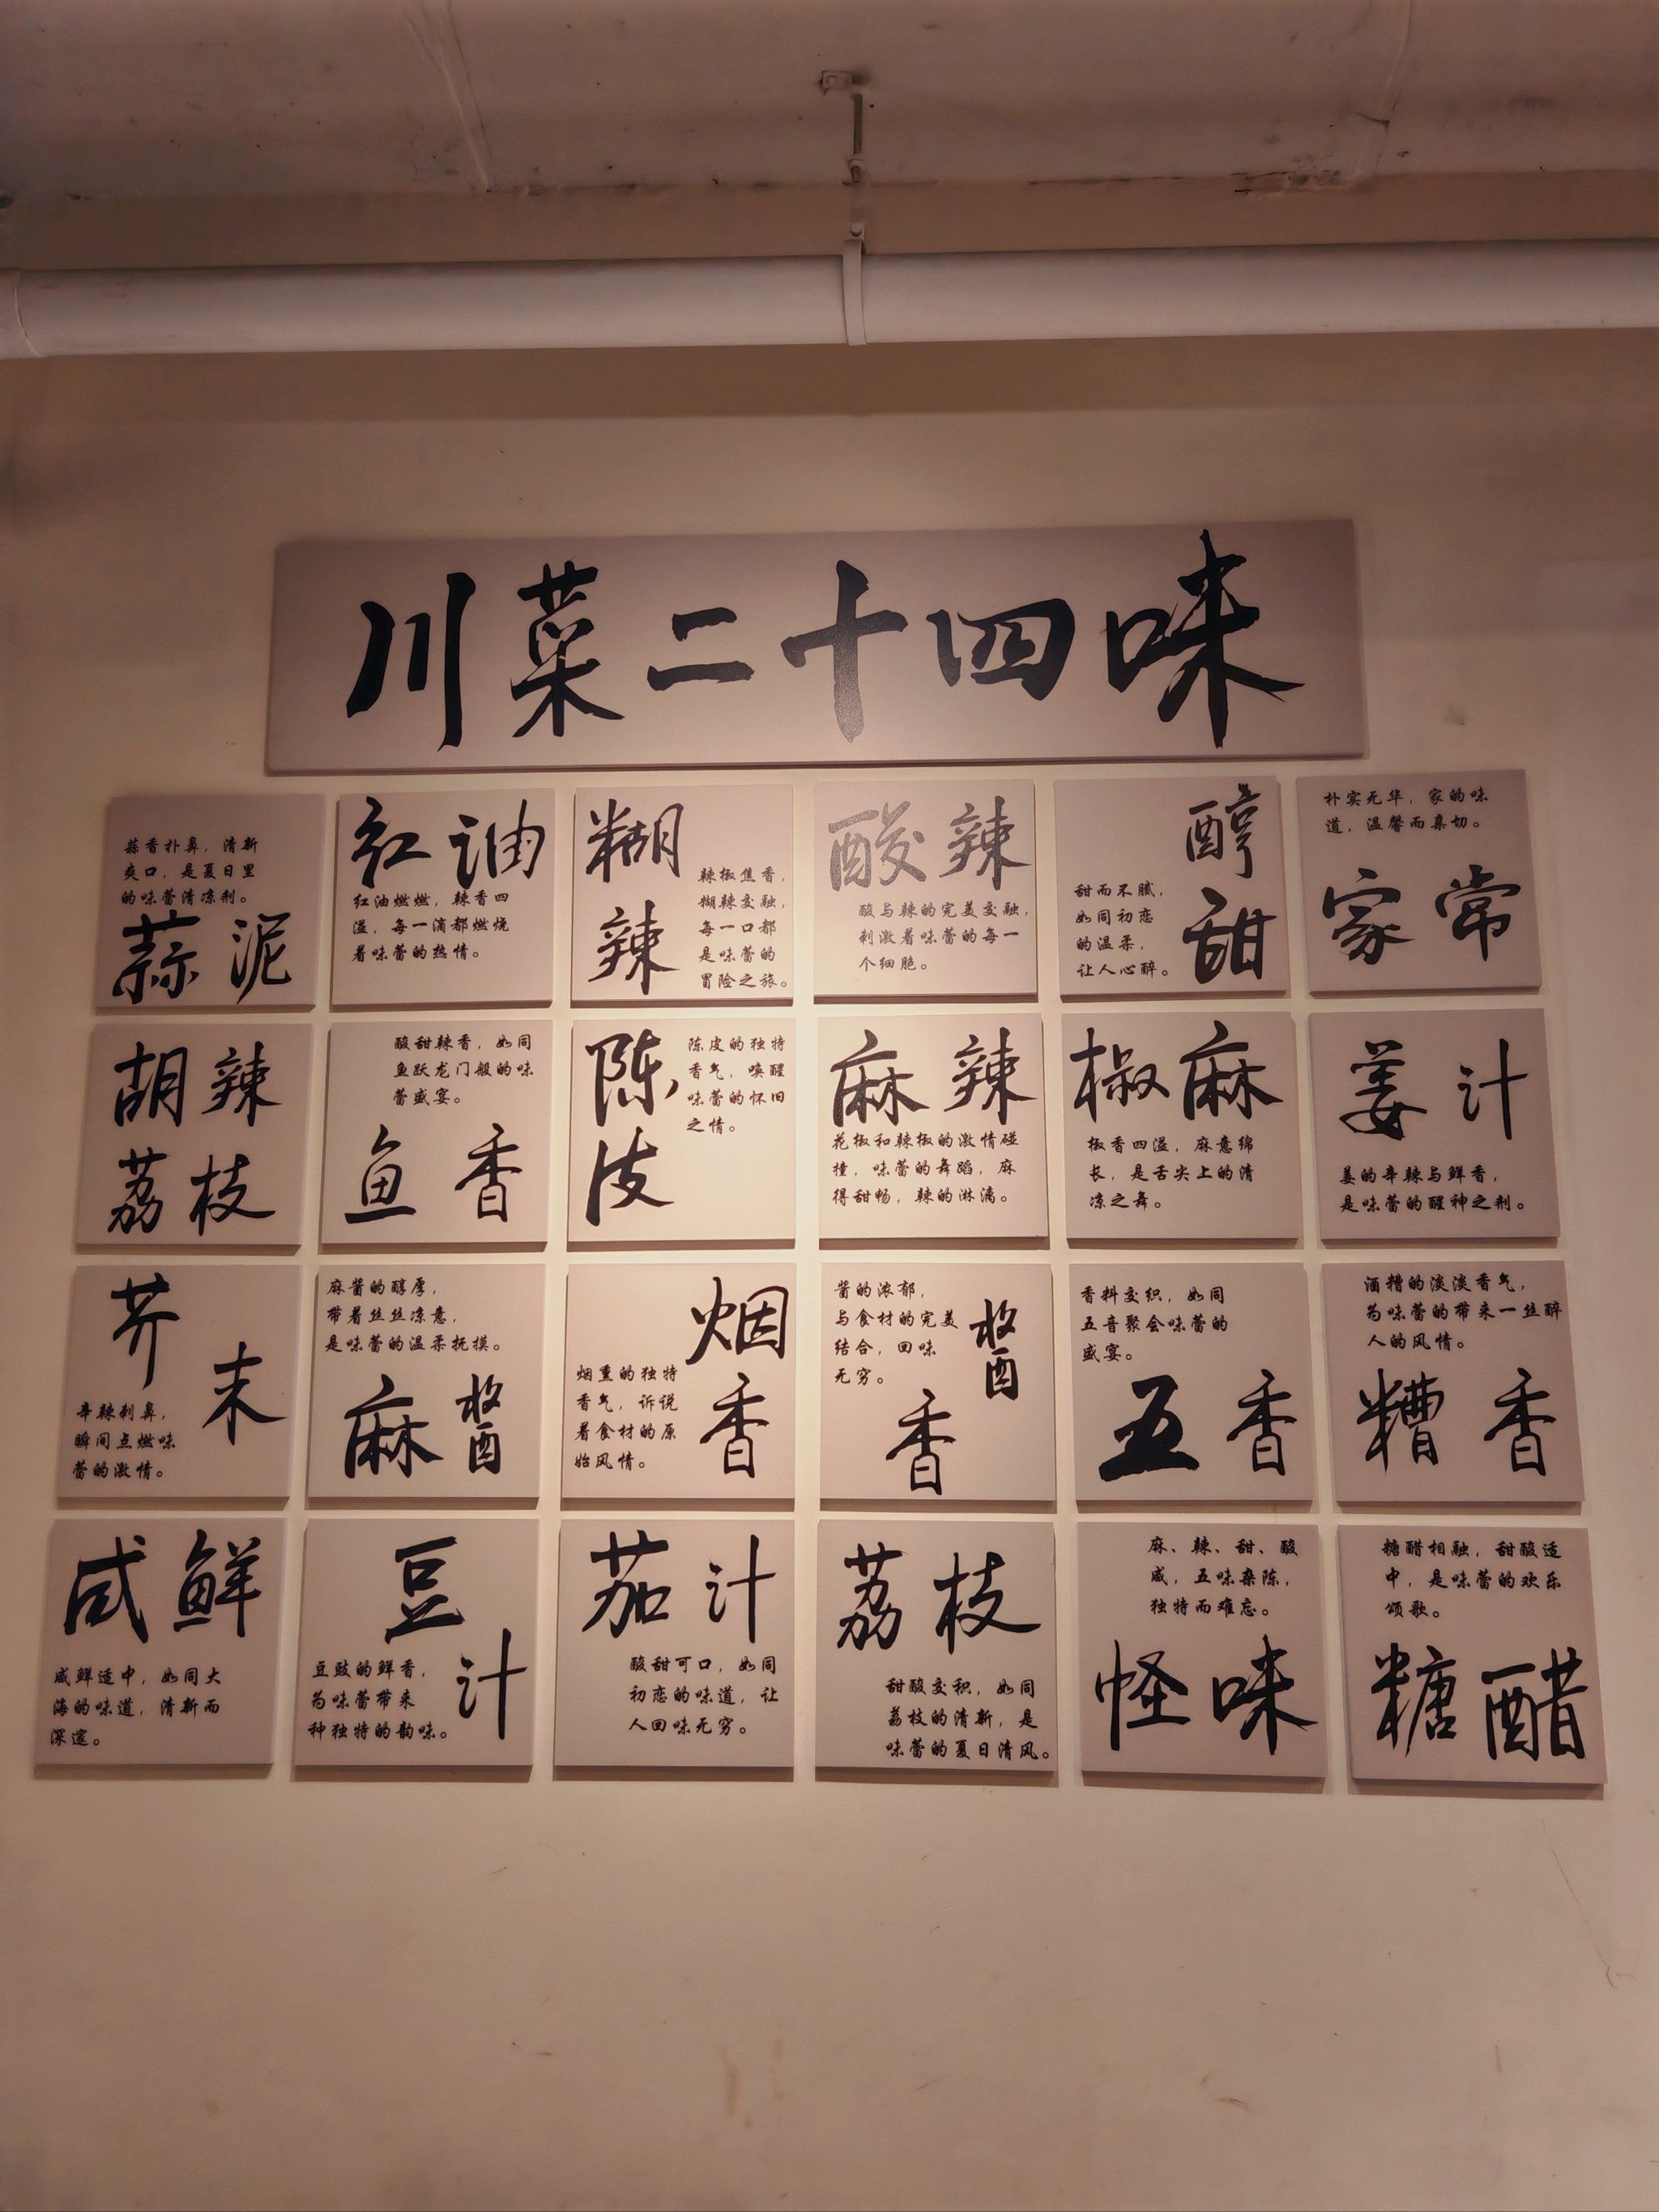 川菜二十四味
蒜香扑鼻，清新
爽口，是夏日里
的味蕾清凉剂。
蒜泥
红油
红油燃燃，辣香四
溢，每一滴都燃烧
着味蕾的热情。
糊
辣
辣椒焦香，
糊辣交融，
每一口都
是味蕾的
冒险之旅。
酸辣
酸与辣的完美交融，
刺激着味蕾的每一
个细胞。
醇
甜
甜而不腻，
如同初恋
的温柔，
让人心醉。
朴实无华，家的味
道，温馨而亲切。
家常
胡辣
荔枝
酸甜辣香，如同
鱼跃龙门般的味
蕾盛宴。
鱼香
陈
皮
陈皮的独特
香气，唤醒
味蕾的怀旧
之情。
麻辣
花椒和辣椒的激情碰
撞，味蕾的舞蹈，麻
得甜畅，辣的淋漓。
椒麻
椒香四溢，麻意绵
长，是舌尖上的清
凉之舞。
姜汁
姜的辛辣与鲜香，
是味蕾的醒神之剂。
芥
末
辛辣刺鼻，
瞬间点燃味
蕾的激情。
麻酱的醇厚，
带着丝丝凉意，
是味蕾的温柔抚摸。
麻酱
烟
香
烟熏的独特
香气，诉说
着食材的原
始风情。
酱的浓郁，
与食材的完美
结合，回味
无穷。
酱
香
香料交织，如同
五音聚会味蕾的
盛宴。
五香
酒糟的淡淡香气，
为味蕾的带来一丝醉
人的风情。
糟香
咸鲜
咸鲜适中，如同大
海的味道，清新而
深邃。
豆
汁
豆豉的鲜香，
为味蕾带来
种独特的韵味。
茄汁
酸甜可口，如同
初恋的味道，让
人回味无穷。
荔枝
甜酸交积，如同
荔枝的清新，是
味蕾的夏日清风。
麻、辣、甜、酸
咸，五味杂陈，
独特而难忘。
怪味
糖醋相融，甜酸适
中，是味蕾的欢乐
颂歌。
糖醋